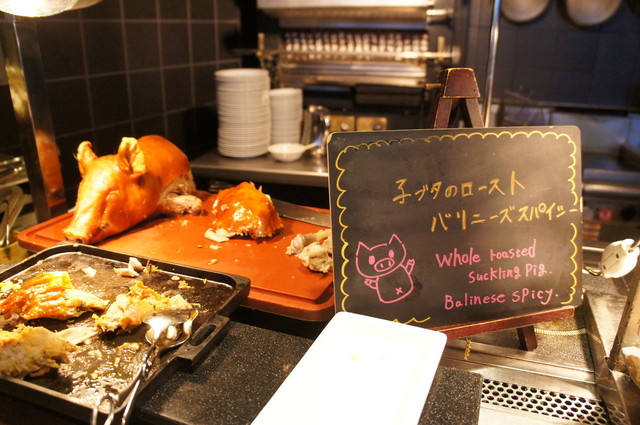 子ブタのロースト
バリニーズスパイシー
Whole roasted
suckling pig.
Balinese spicy.